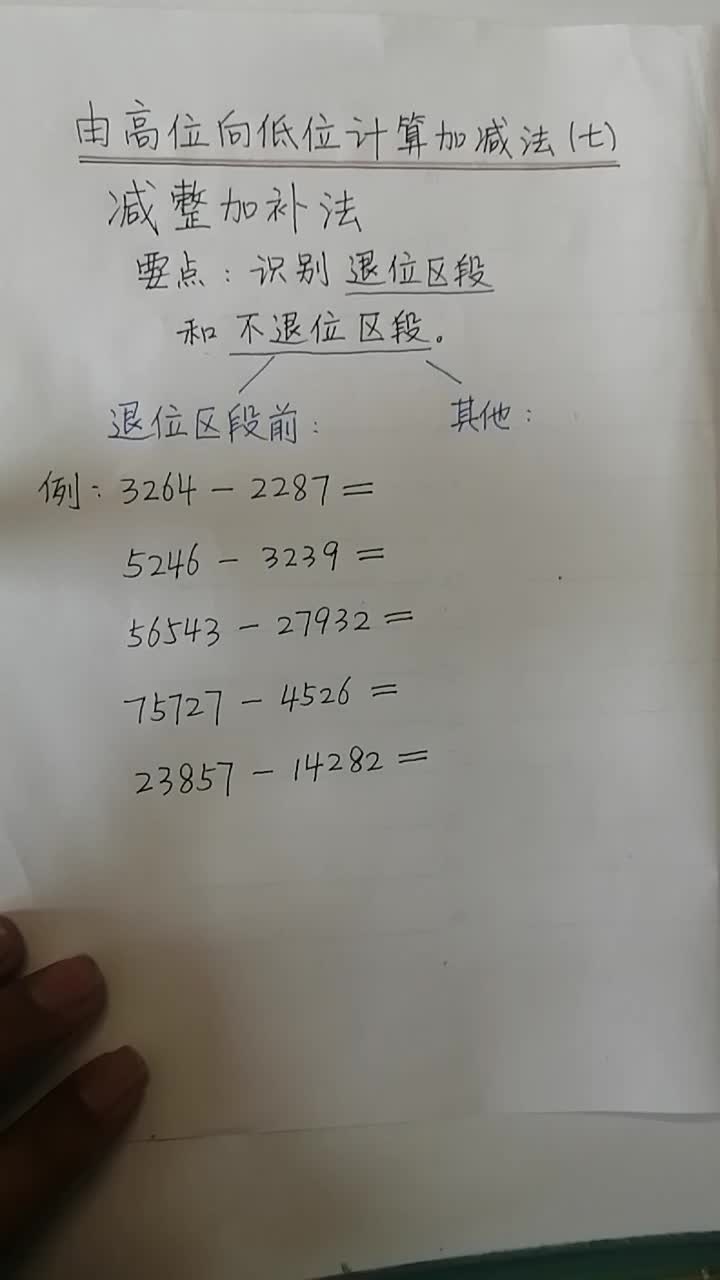 由高位向低位计算加减法(七)
减整加补法
要点：识别退位区段
和不退位区段。
退位区段前： 其他：
例：3264－2287＝
5246－3239＝
56543－27932＝
75727－4526＝
23857－14282＝